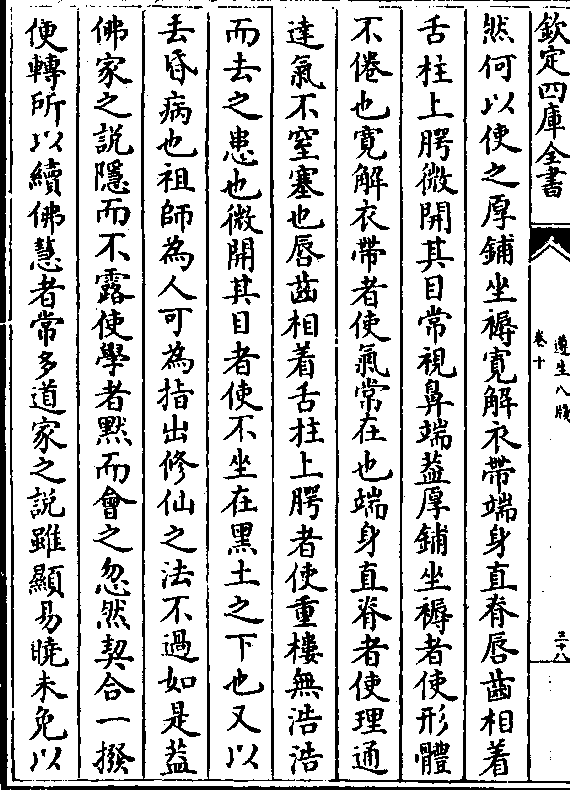 欽定四庫全書
遵生八牋
卷十
三十八
然何以使之厚鋪坐褥寛解衣帶端身直脊唇齒相着
舌柱上腭微開其目常視鼻端葢厚鋪坐褥者使形體
不倦也寛解衣帶者使氣常在也端身直脊者使理通
達氣不窒塞也唇齒相着舌柱上腭者使重樓無浩浩
而去之患也微開其目者使不坐在黑土之下也又以
去昏病也祖師為人可為指出修仙之法不過如是葢
佛家之説隱而不露使學者黙而會之忽然契合一撥
便轉所以續佛慧者常多道家之説雖顯易曉未免以